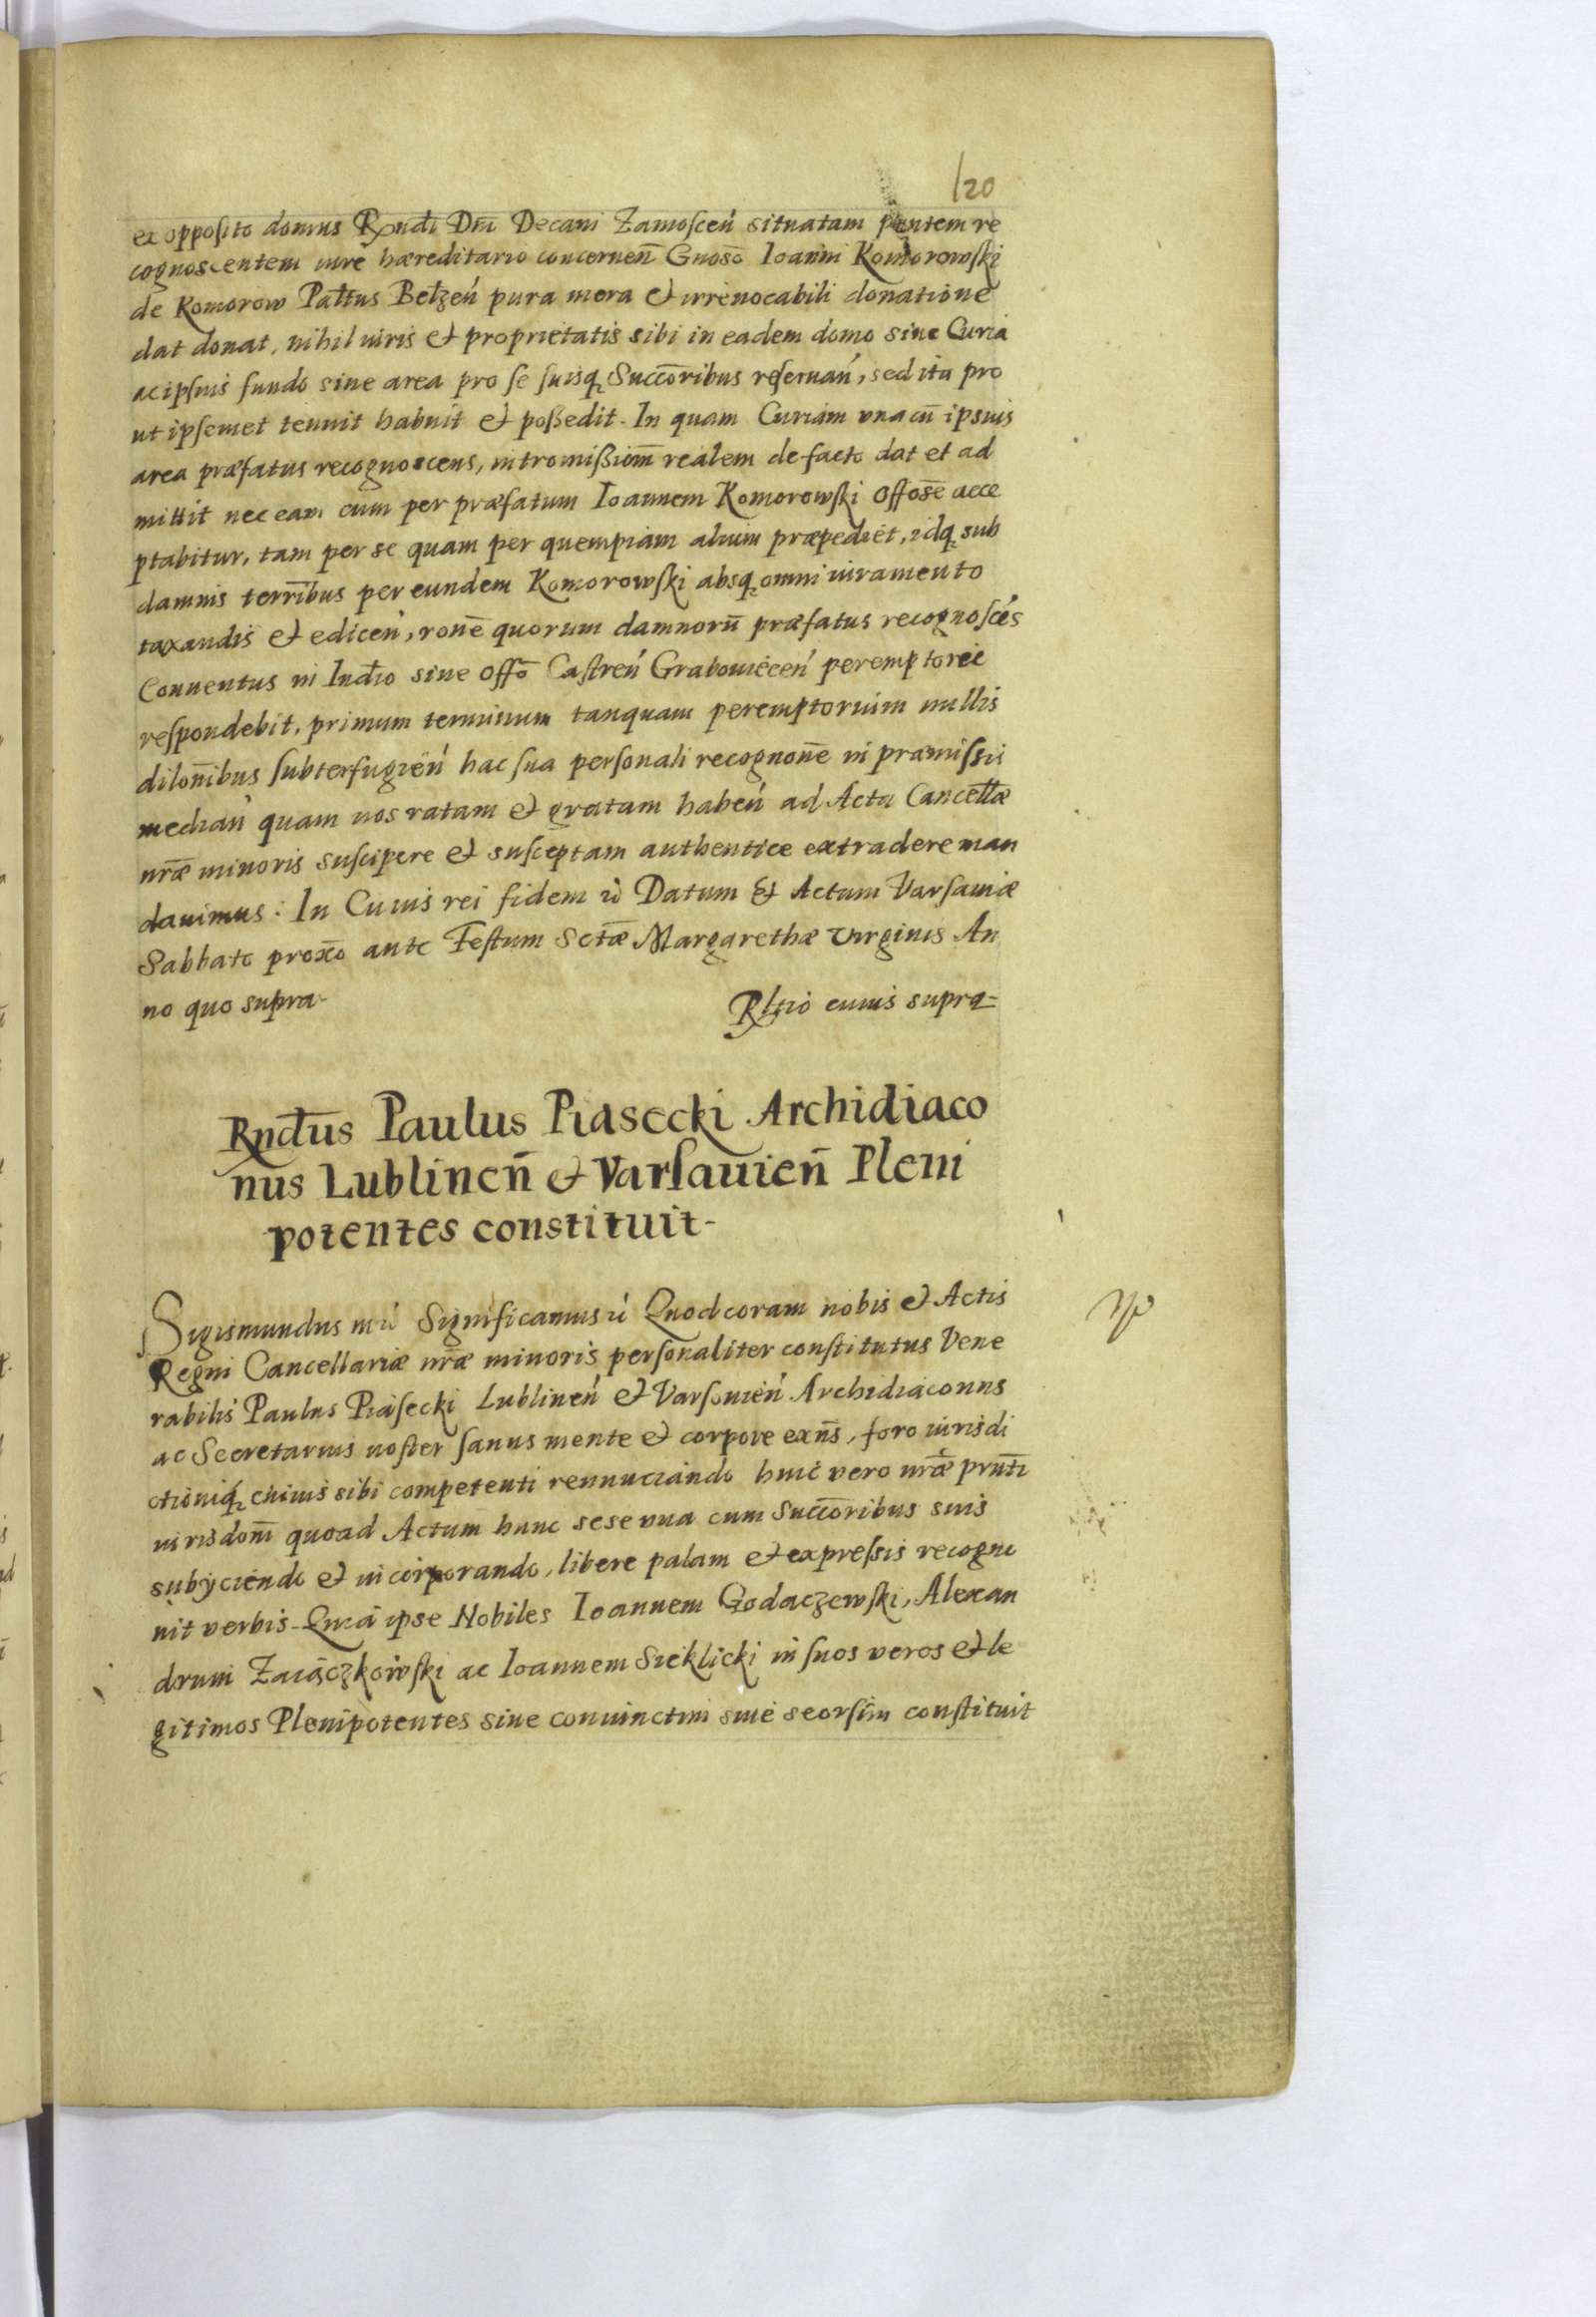 120
ex opposito domus Rxndi Dni Decani Zamoscen̄ situatam pntem re
cognoscentem iure hæreditario concernen̄ Gnoso Ioanni Komorowski
de Komorow Pałtus Bełzen̄ pura mera & irreuocabili donatione
dat donat, nihil iuris & proprietatis sibi in eadem domo siue Curia
ac ipsius fundo siue area pro se suisq̨ Succ̄oribus reseruan̄, sed ita pro
ut ipsemet tenuit habuit & possedit. In quam Curiam vna cū ipsius
area præfatus recognoscens, intromissiōm realem de facto dat et ad
mittit nec eam cum per præfatum Ioannem Komorowski Offōse acce
ptabitur, tam per se quam per quempiam alium præpediet, idq̨ sub
damnis terr̄ibus per eundem Komorowski absq̨ omni iuramento
taxandis & edicen̄, ronē quorum damnorū præfatus recognoscēs
Conuentus in Iudīo siue Offō Castren̄ Grabouiecen̄ peremptorie
respondebit, primum terminum tanquam peremptorium nullis
dilōnibus subterfugien̄ hac sua personali recognōne in præmissis
median̄ quam nos ratam & gratam haben̄ ad Acta Cancełłæ
nr̄æ minoris suscipere & susceptam authentice extradere man
dauimus: In Cuius rei fidem ū Datum & Actum Varsauiæ
Sabbato prox̄o ante Festum Sctæ Margarethæ Virginis An
no quo supra-
Rltio cuius supra-
Rndus Paulus Piasecki Archidiaco
nus Lublinen̄ & Varsauien̄ Pleni
potentes constituit-
Sigismundus mū Significamus ū Quod coram nobis & Actis
Regni Cancellariæ nr̄æ minoris personaliter constitutus Vene
rabilis Paulus Piasecki Lublinen̄ & Varsouien̄ Archidiaconus
ac Secretarius noster sanus mente & corpore exn̄s, foro iurisdi
ctioniq̨ cuiuis sibi competenti renunciando huic vero nr̄æ prn̄ti
iurisdom̄ quoad Actum hunc sese vna cum Succ̄oribus suis
subijciendo & incorporando, libere palam & expressis recogno
uit verbis. Quia ipse Nobiles Ioannem Godaczewski, Alexan
drum Zaiączkowski ac Ioannem Sieklicki in suos veros & le
gitimos Plenipotentes siue coniunctim siue seorsim constituit